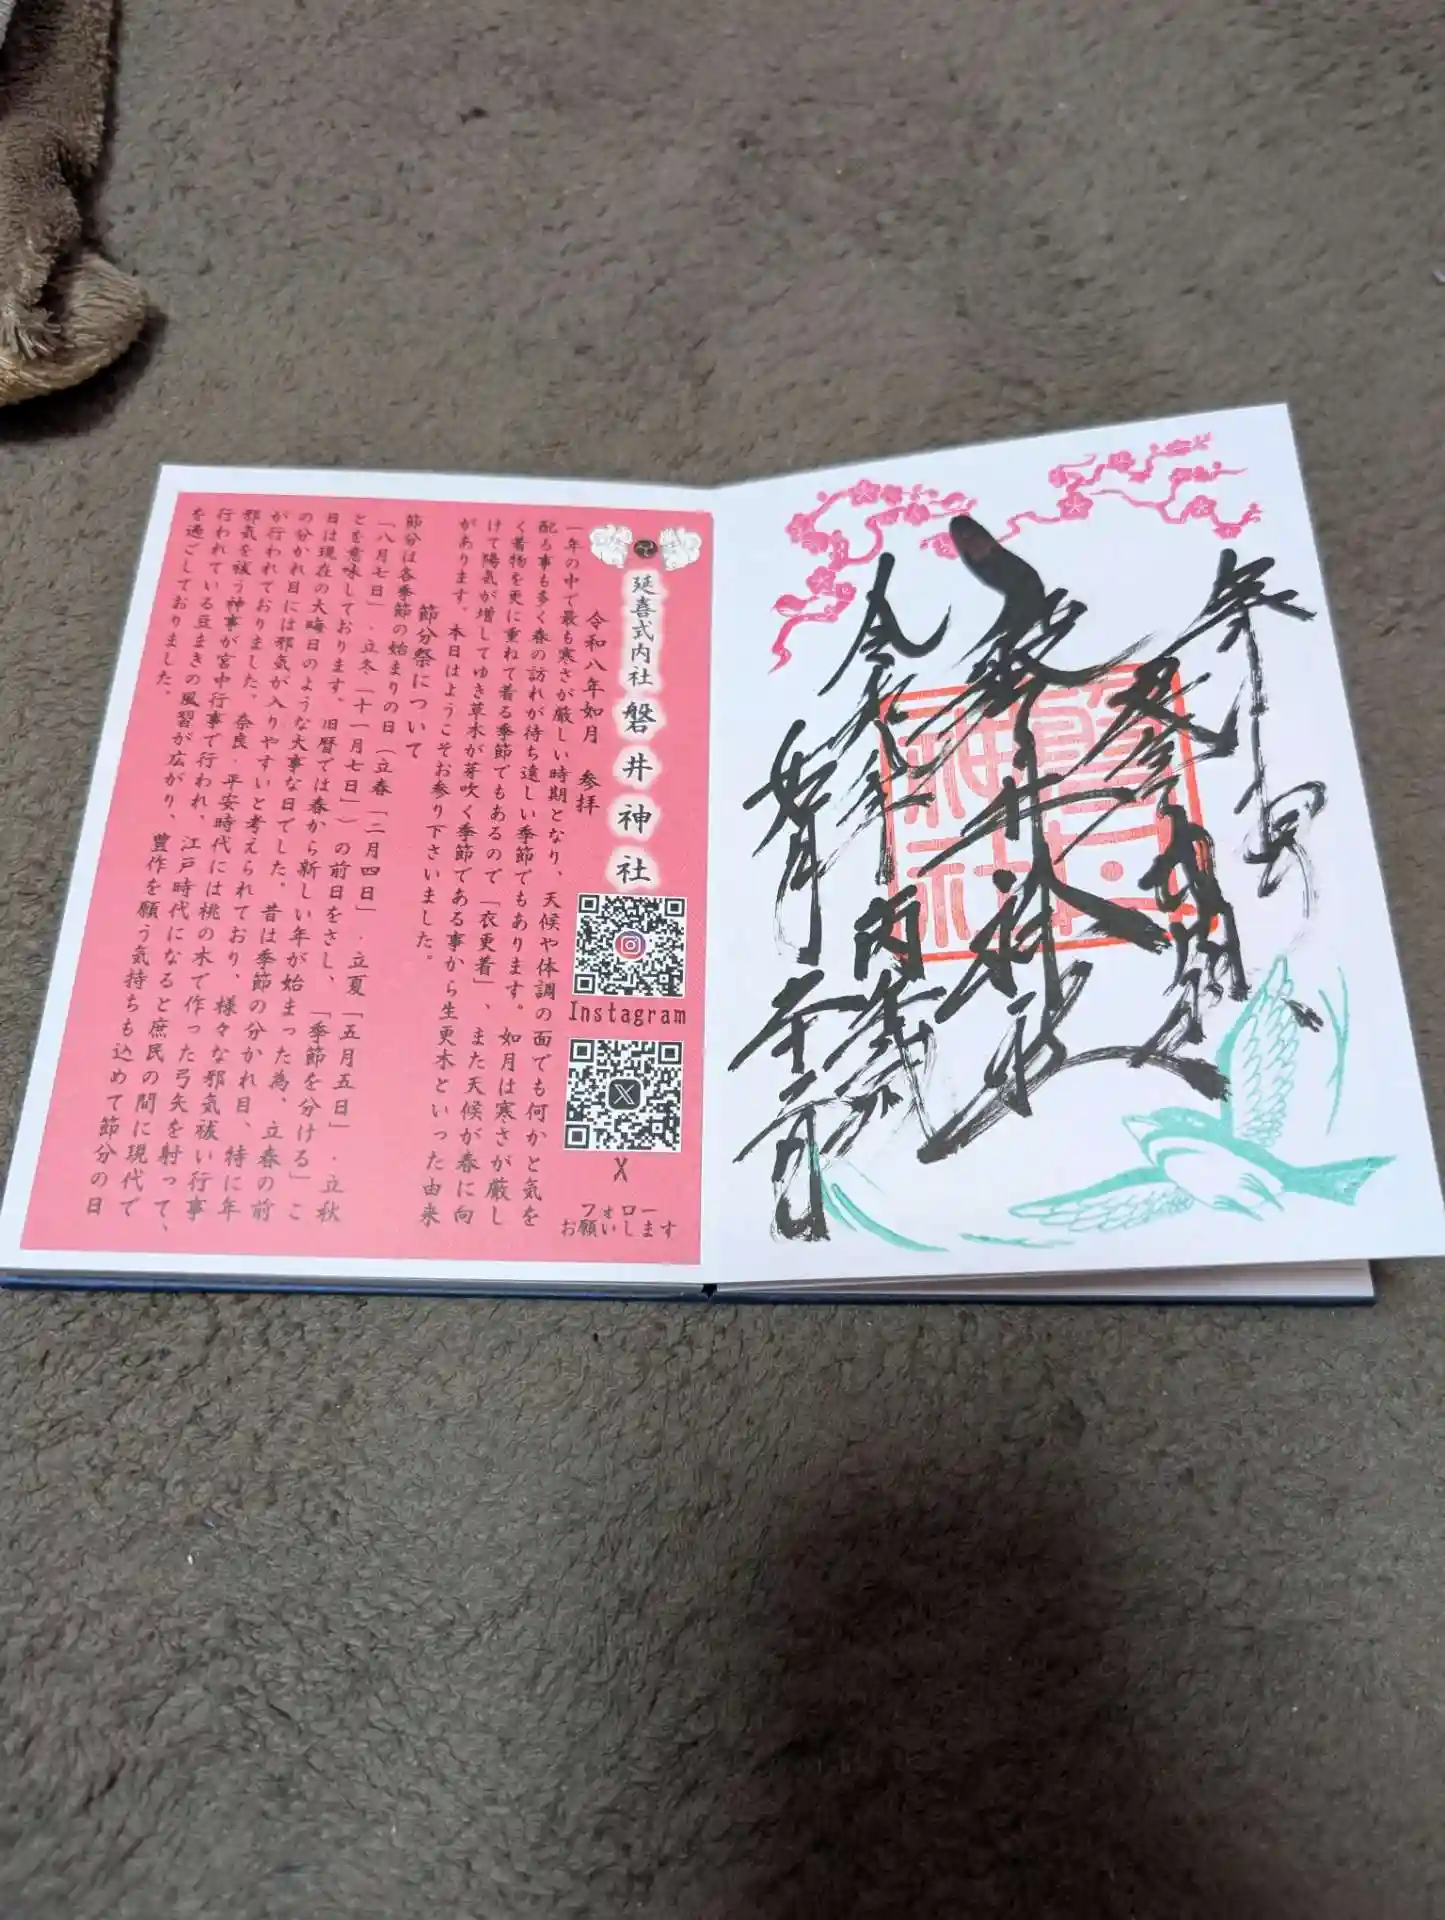 奉拝
延喜式内社
磐井神社
令和八年
丙午
如月
二月
磐井神社
延喜式内社 磐井神社
令和八年如月 参拝
一年の中で最も寒さが厳しい時期となり、天候や体調の面でも何かと気を
配る事も多く春の訪れが待ち遠しい季節でもあります。如月は寒さが厳し
く着物を更に重ねて着る季節でもあるので「衣更着」、また天候が春に向
けて陽気が増してゆき草木が芽吹く季節である事から生更木といった由来
があります。本日はようこそお参り下さいました。
節分祭について
節分は各季節の始まりの日(立春「二月四日」.立夏「五月五日」.立秋
「八月七日」.立冬「十一月七日」)の前日をさし、「季節を分ける」こ
とを意味しております。旧暦では春から新しい年が始まった為、立春の前
日は現在の大晦日のような大事な日でした。昔は季節の分かれ目、特に年
の分かれ目には邪気が入りやすいと考えられており、様々な邪気祓い行事
が行われておりました。奈良.平安時代には桃の木で作った弓矢を射って、
邪気を祓う神事が宮中行事で行われ、江戸時代になると庶民の間に現代で
行われている豆まきの風習が広がり、豊作を願う気持ちも込めて節分の日
を過ごしておりました。
Instagram
X
フォロー
お願いします